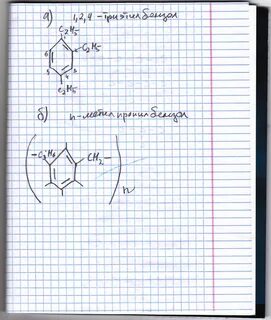 а) 1,2,4 - триэтилбензол
C₂H₅
C₂H₅
6
5
3
4
C₂H₅
б) п-метилпропилбензол
-C₂H₆
CH₂-
n